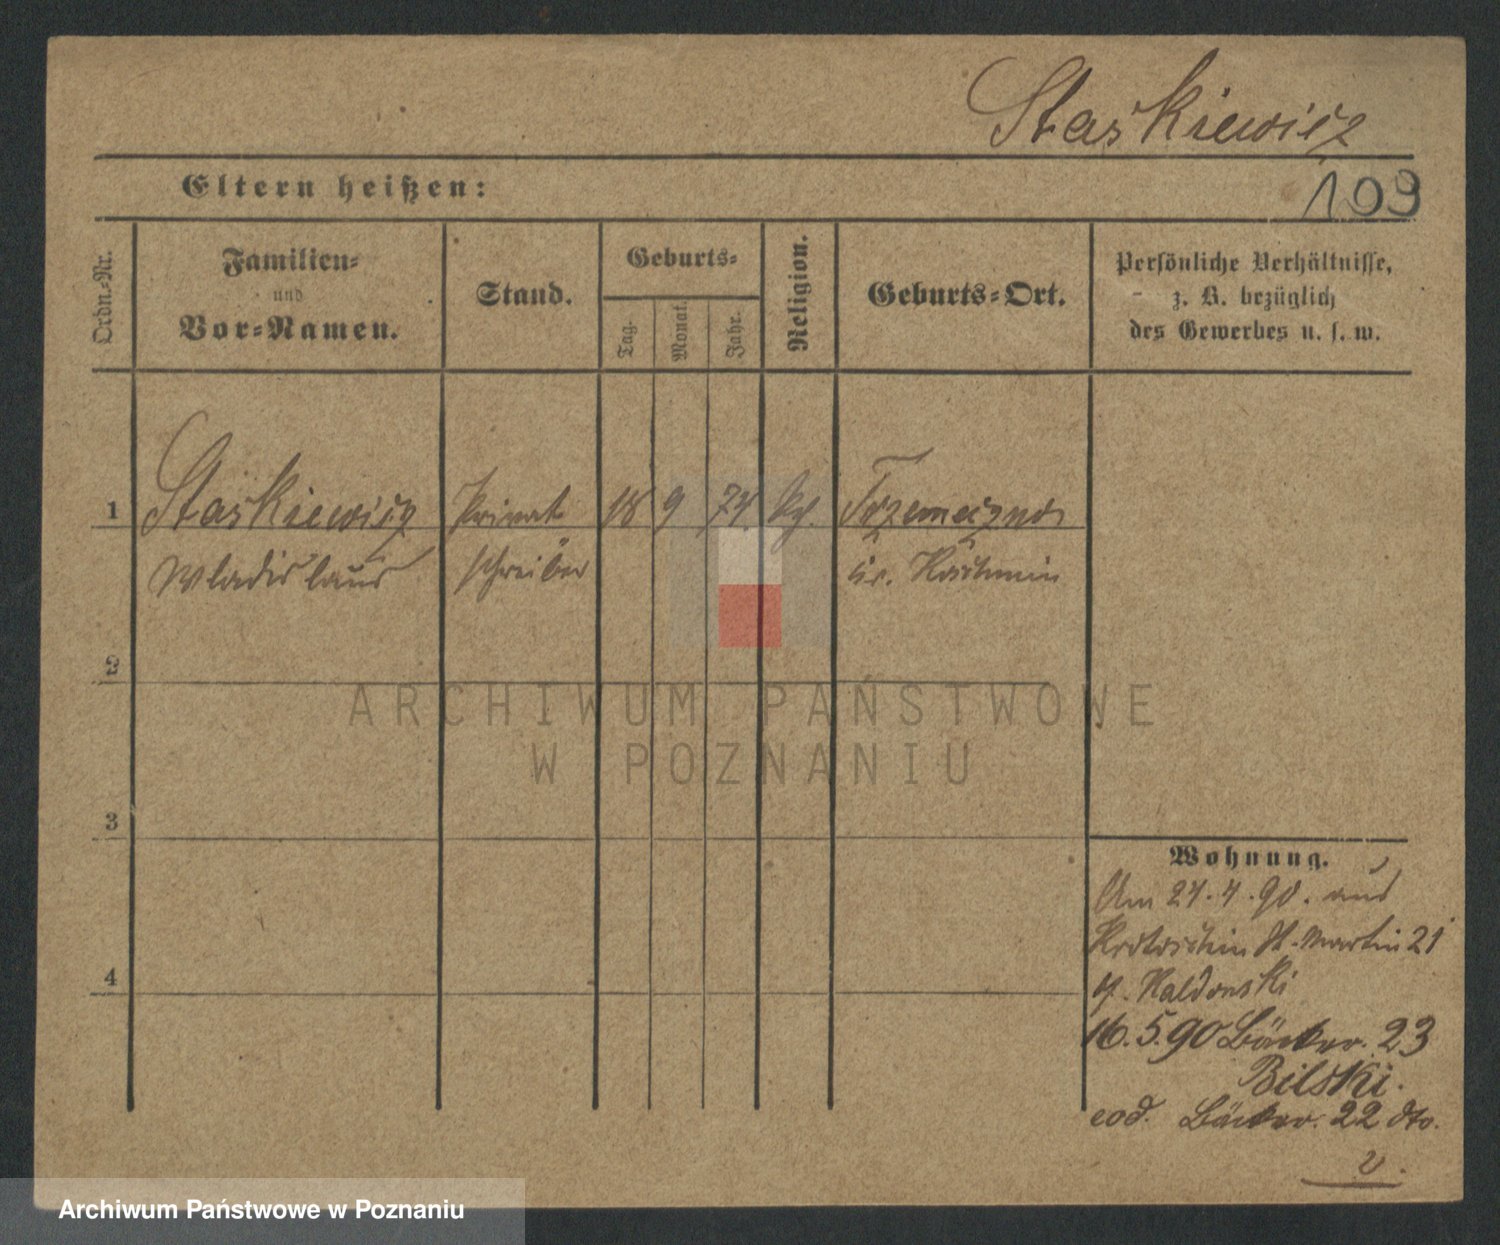 Staskiewicz
Eltern heißen:
109
Ordn.-Nr.
Familien-
und
Vor-Namen.
Stand.
Geburts-
Tag.
Monat.
Jahr.
Religion.
Geburts-Ort.
Persönliche Verhältnisse,
z. B. bezüglich
des Gewerbes u. s. w.
1 Staskiewicz Privat 18 9 74 Trzemeszno
Wladislaus schreiber
2
3
4
Wohnung.
Am 24.4.90. aus
Krotoschin St. Martin 21
16.5.90 Bäcker. 23
Bilski.
eod. Bäcker. 22 dto.
ARCHIWUM PAŃSTWOWE
W POZNANIU
Archiwum Państwowe w Poznaniu